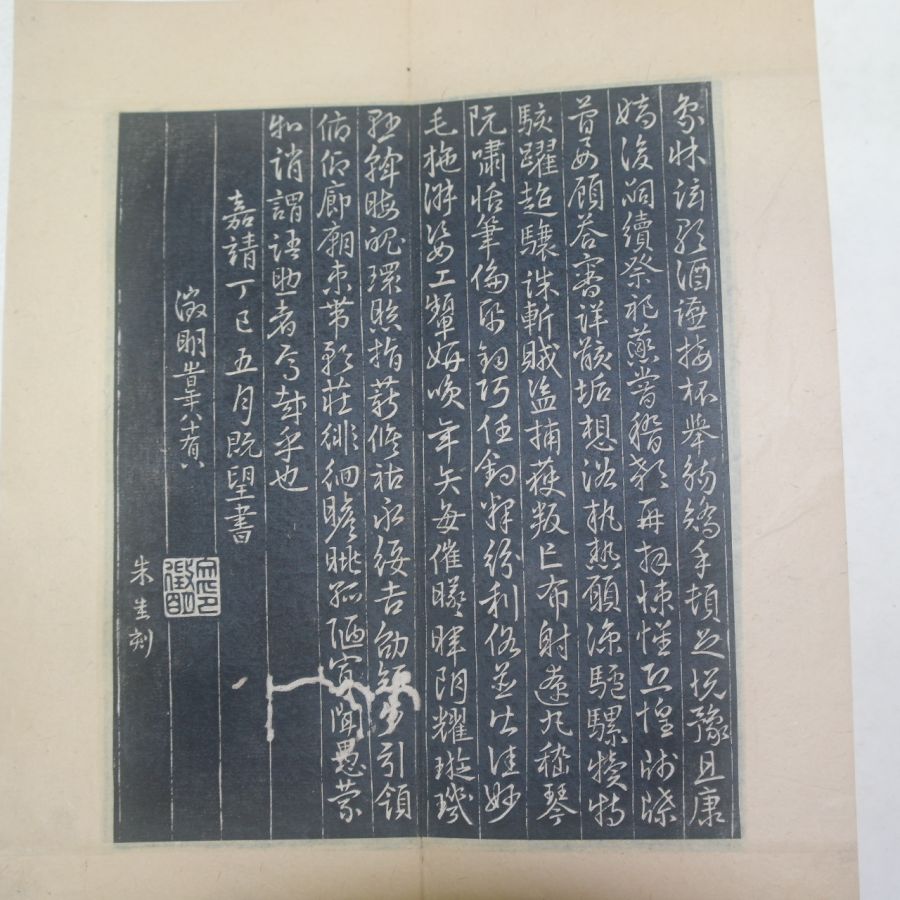 象牀弦歌酒讌接杯舉觴矯手頓足悅豫且康
嫡後嗣續祭祀蒸嘗稽顙再拜悚懼恐惶牋牒
簡要顧答審詳骸垢想浴執熱願涼驢騾犢特
駭躍超驤誅斬賊盜捕獲叛亡布射遼丸嵇琴
阮嘯恬筆倫紙鈞巧任釣釋紛利俗並皆佳妙
毛施淑姿工顰妍咲年矢每催曦暉朗耀璇璣
懸斡晦魄環照指薪脩祜永綏吉劭矩步引領
俯仰廊廟束帶矜莊徘徊瞻眺孤陋寡聞愚蒙
等誚謂語助者焉哉乎也
嘉靖丁巳五月既望書
徵明時年八十有八
文徵明印
朱生刻